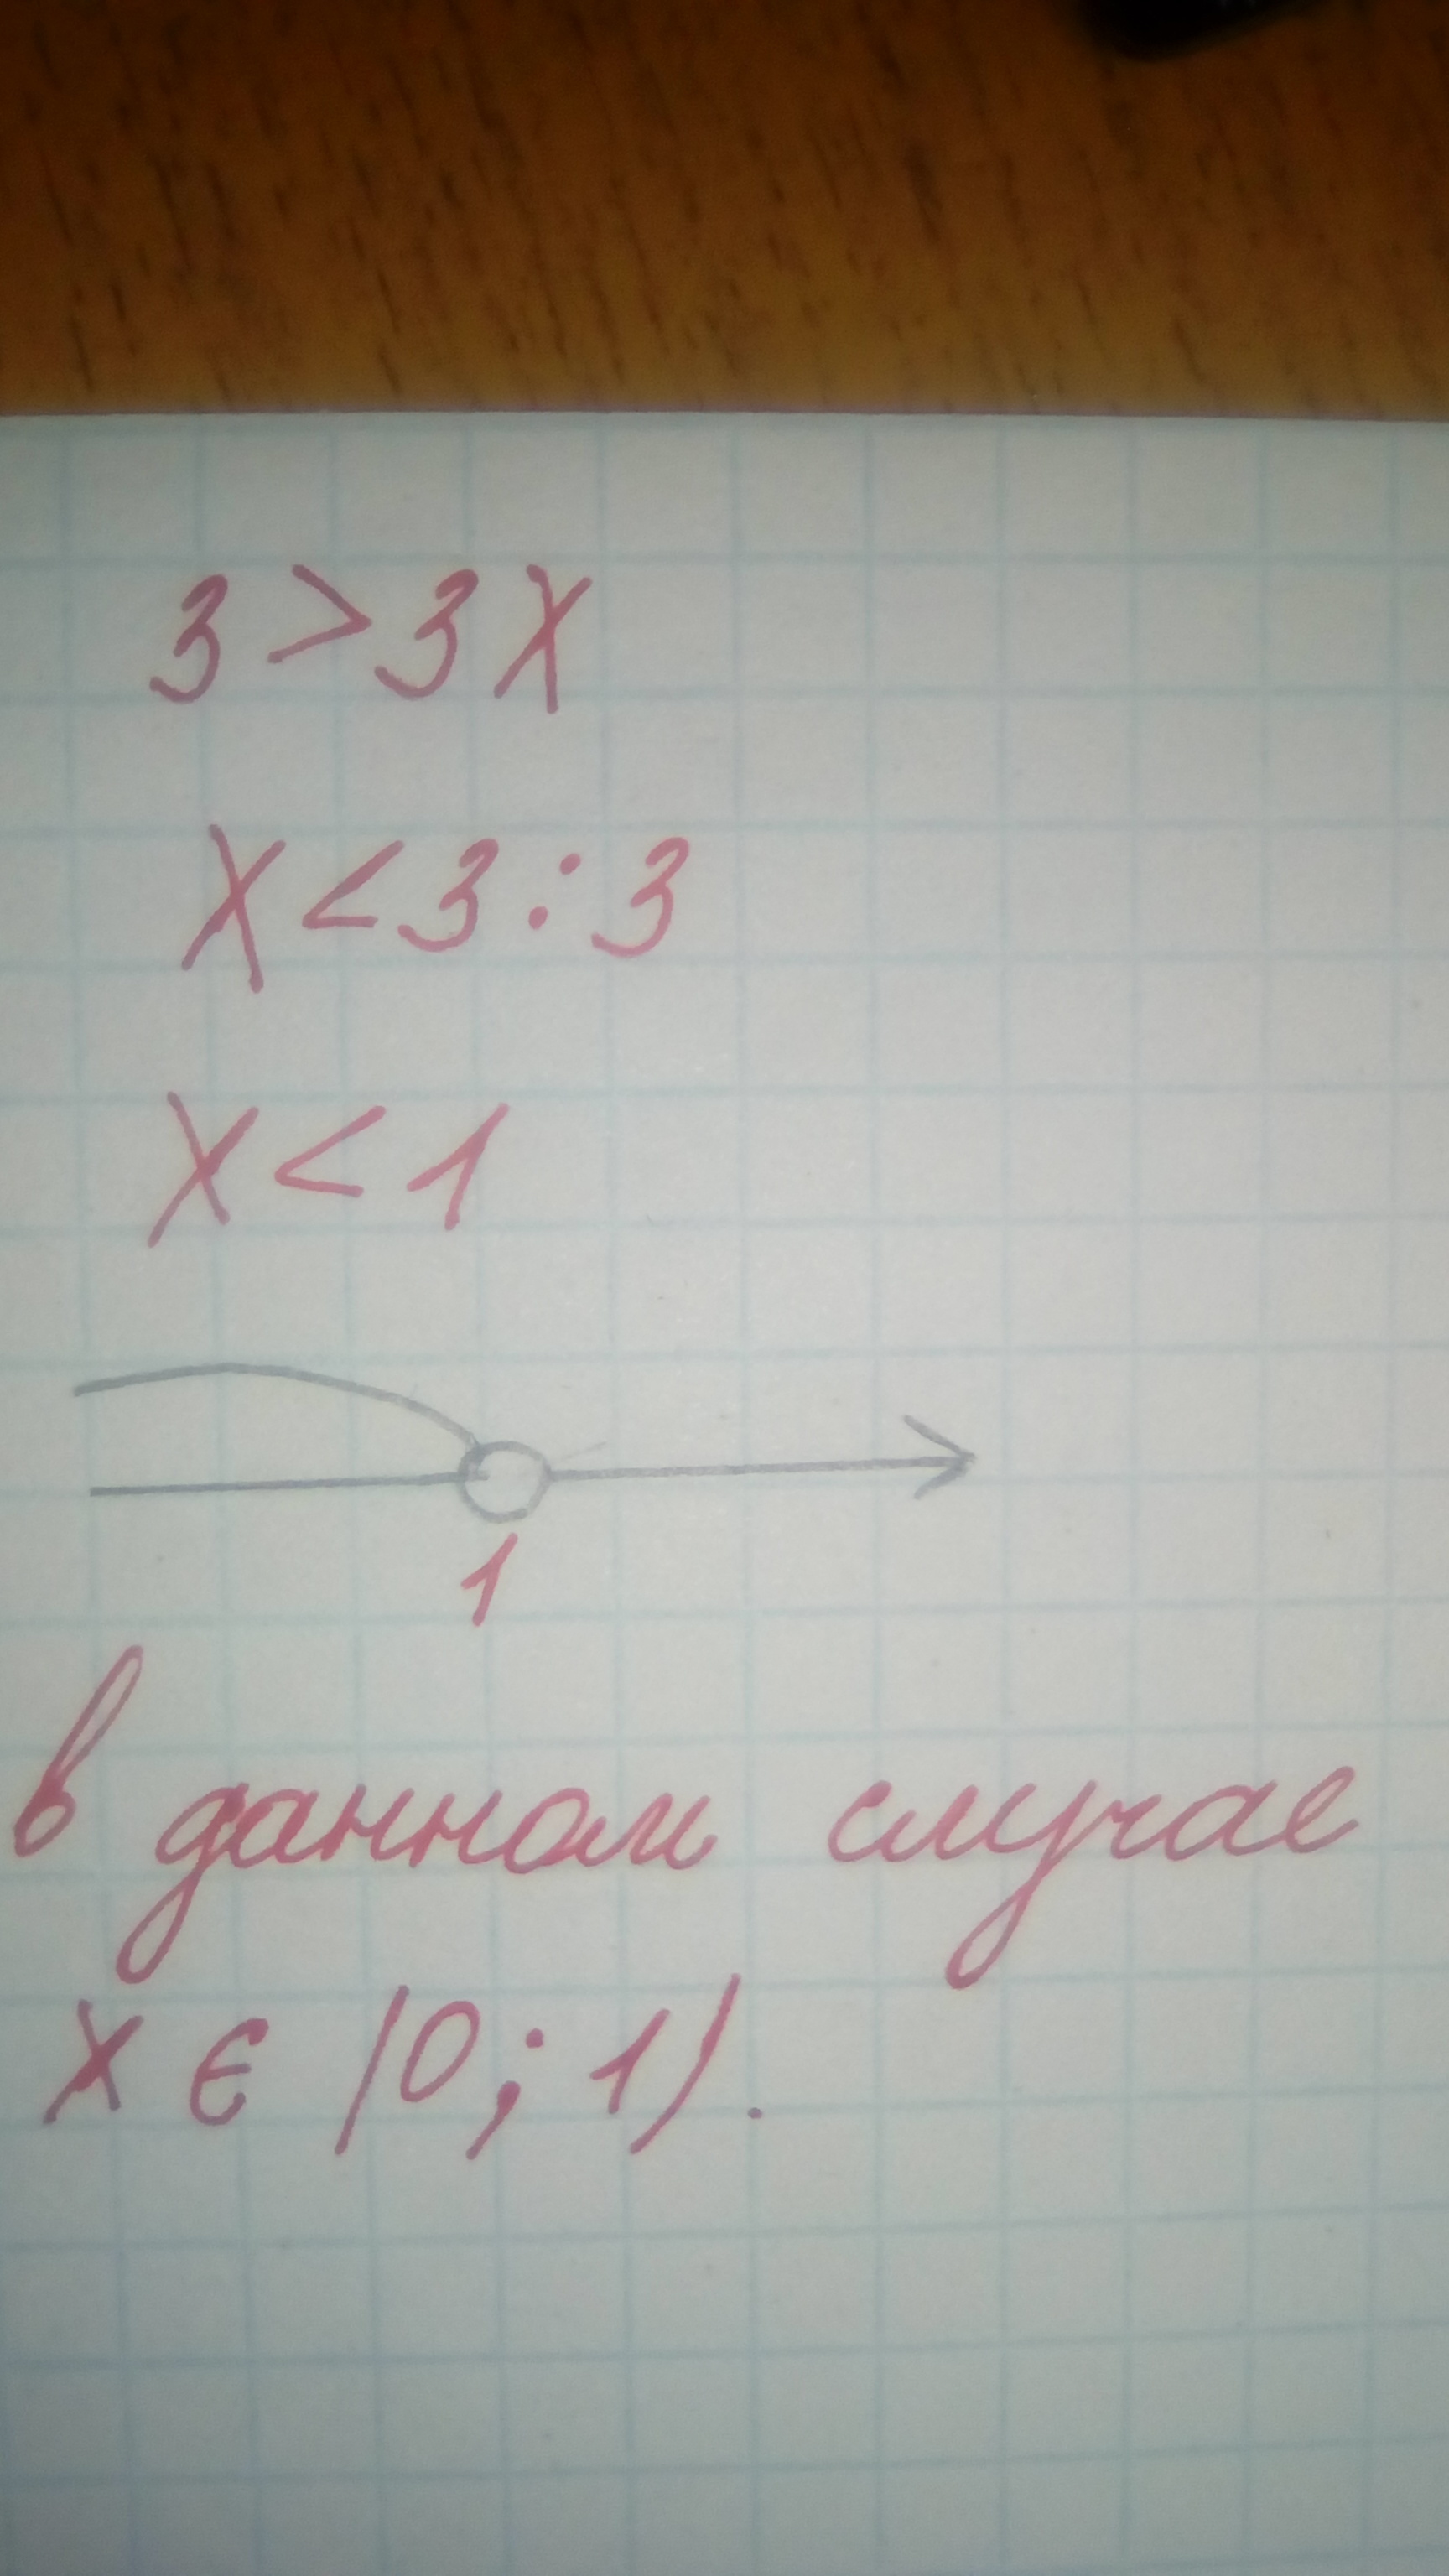 3 > 3x
x < 3 : 3
x < 1
1
в данном случае
x ∈ (0; 1).